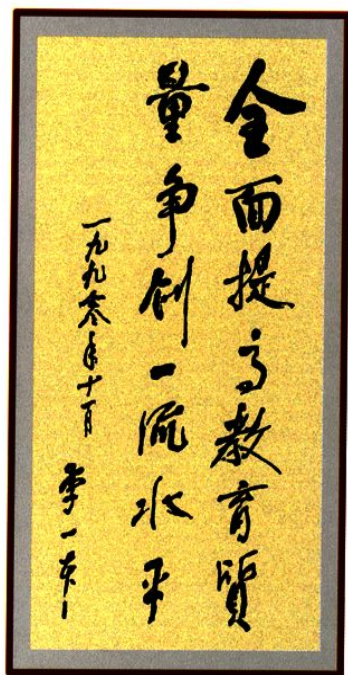 全面提高教育質
量争创一流水平
一九九零年十一月
李一本